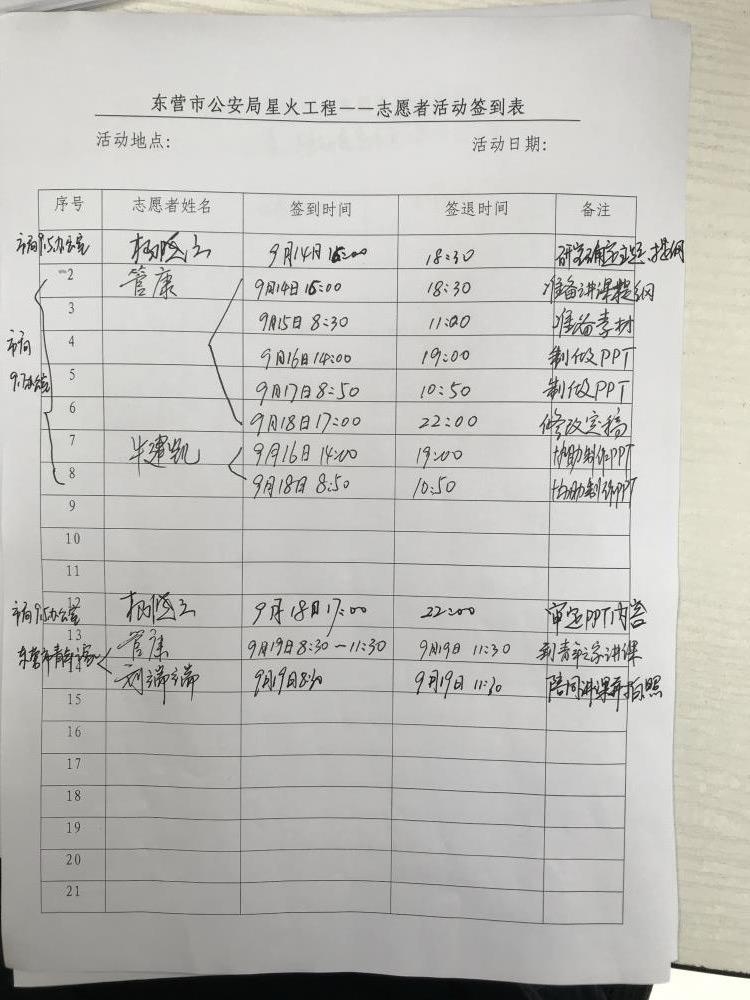 东营市公安局星火工程——志愿者活动签到表
活动地点: 活动日期:
序号 志愿者姓名 签到时间 签退时间 备注
市局915办公室 杨 9月14日 15:00 18:30 研究确定主题、提纲
2 管康 9月14日 15:00 18:30 准备讲课提纲
3 9月15日 8:30 11:00 准备素材
市局
4 9月16日 14:00 19:00 制做PPT
办公室
5 9月17日 8:50 10:50 制做PPT
6 9月18日 17:00 22:00 修改定稿
7 牛建凯 9月16日 14:00 19:00 协助制作PPT
8 9月18日 8:50 10:50 协助制作PPT
9
10
11
市局915办公室 12 杨 9月18日 17:00 22:00 审定PPT内容
13 管康 9月19日 8:30-11:30 9月19日 11:30 到青年之家讲课
东营市青年之家
14 刘端端 9月19日 8:30 9月19日 11:30 陪同讲课并拍照
15
16
17
18
19
20
21